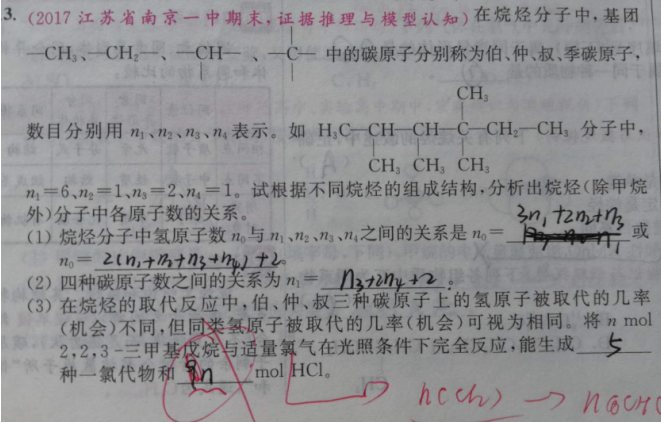 3. (2017江苏省南京一中期末,证据推理与模型认知)在烷烃分子中,基团
—CH₃、—CH₂—、—CH—、—C— 中的碳原子分别称为伯、仲、叔、季碳原子,
CH₃
数目分别用 n₁、n₂、n₃、n₄ 表示。如 H₃C—CH—CH—C—CH₂—CH₃ 分子中,
CH₃ CH₃ CH₃
n₁=6、n₂=1、n₃=2、n₄=1。试根据不同烷烃的组成结构,分析出烷烃(除甲烷
外)分子中各原子数的关系。
3n₁+2n₂+n₃
(1) 烷烃分子中氢原子数 n₀ 与 n₁、n₂、n₃、n₄ 之间的关系是 n₀= 或
n₀= 2(n₁+n₂+n₃+n₄)+2。
(2) 四种碳原子数之间的关系为 n₁= n₃+2n₄+2。
(3) 在烷烃的取代反应中,伯、仲、叔三种碳原子上的氢原子被取代的几率
(机会)不同,但同类氢原子被取代的几率(机会)可视为相同。将 n mol
2,2,3-三甲基戊烷与适量氯气在光照条件下完全反应,能生成 5
种一氯代物和 n mol HCl。
n(Cl₂) →